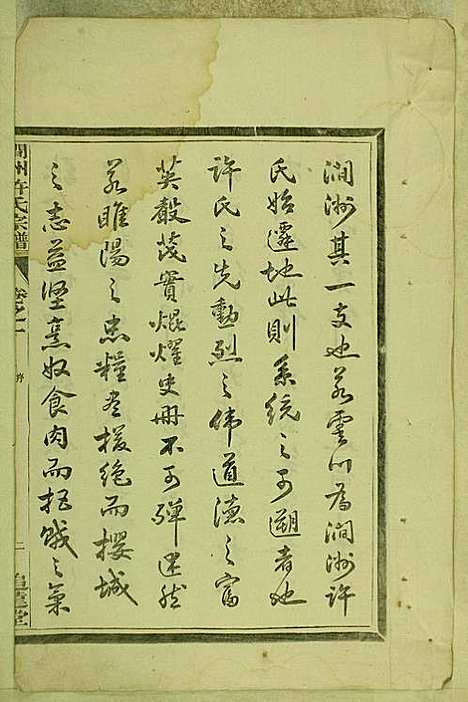 澗洲其一支也若雲川為澗洲許
氏始遷地此則系統之可遡者也
許氏之先勳烈之偉道德之富
英聲茂實焜燿史冊不可殫述然
若睢陽之忠糧盡援絕而攖城
之志益堅烹奴食肉而拒賊之氣
州許氏宗譜
卷之一
序
二